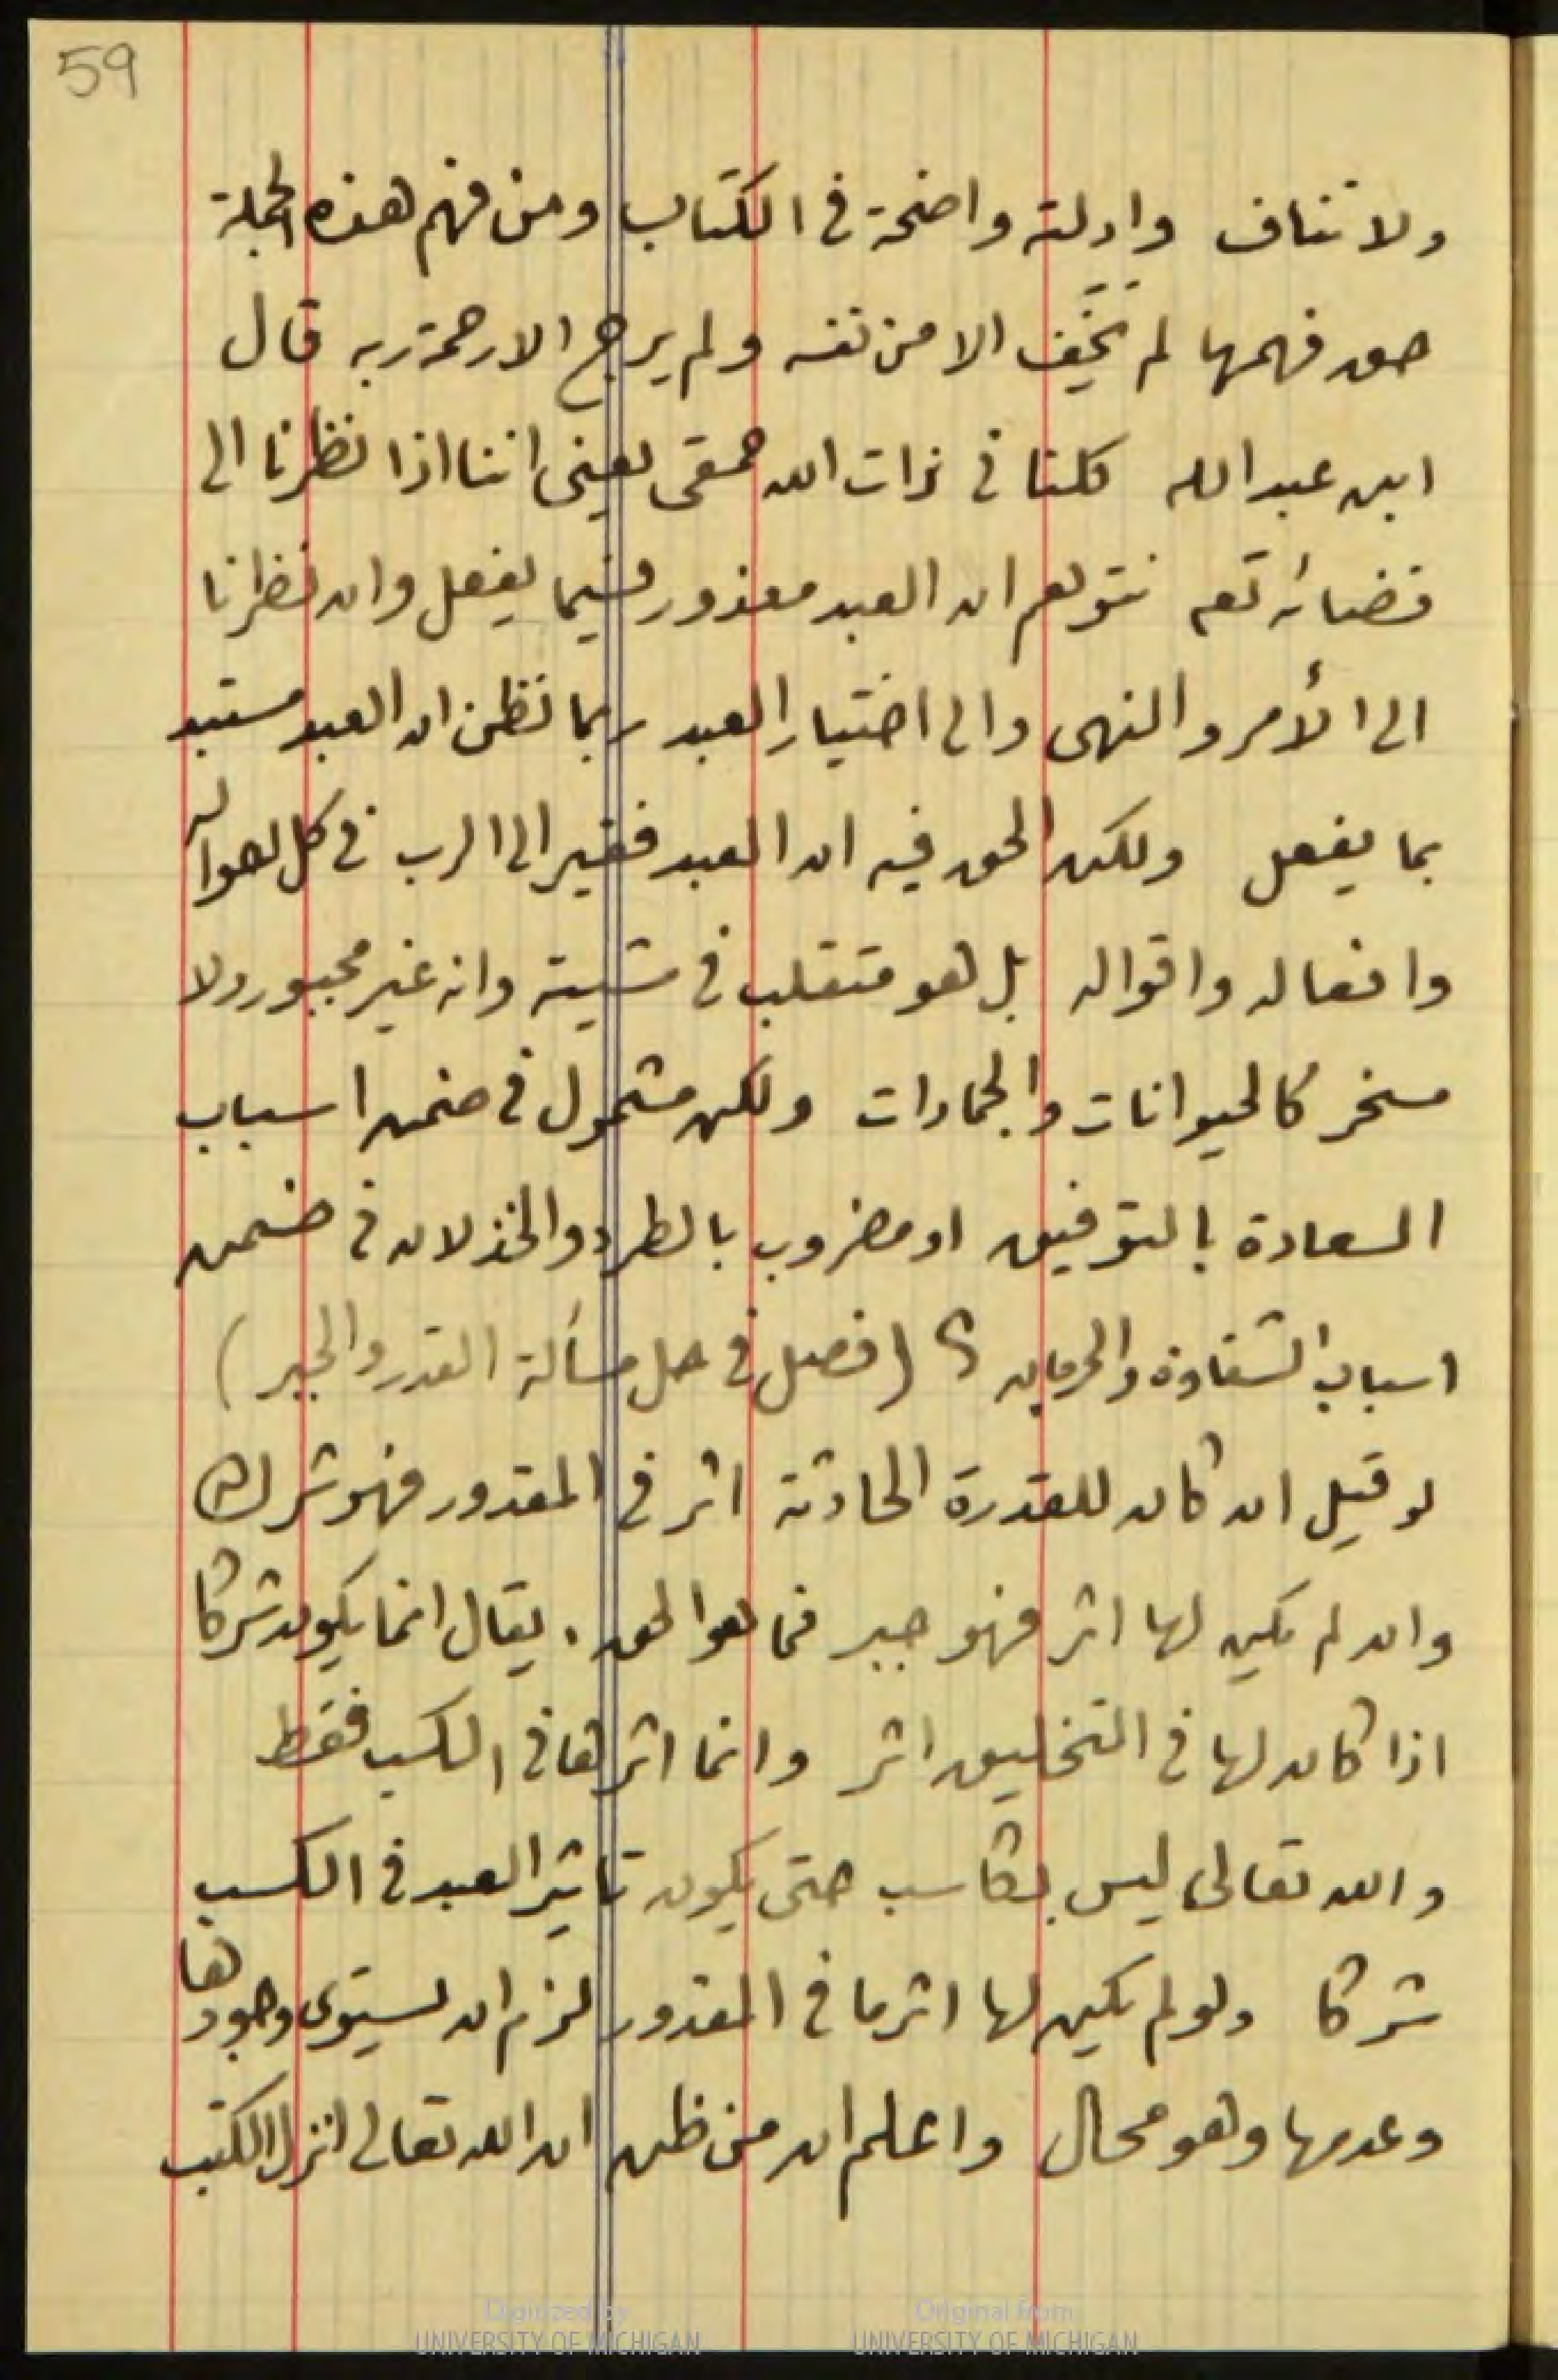 59
ولا تناف وادلته واضحة فى الكتاب ومن فهم هذه الجملة
حق فهمها لم يخف الا من نفسه ولم يرج الا رحمة ربه قال
ابن عبدالله كلنا فى ذات الله حمقى يعنى اننا اذا نظرنا الى
قضائه تعه نتوهم ان العبد معذور فيما يفعل وان نظرنا
الى الأمر والنهى والى اختيار العبد ربما نظن ان العبد مستبد
بما يفعل ولكن الحق فيه ان العبد فقير الى الرب فى كل احواله
وافعاله واقواله بل هو متقلب فى مشيته وانه غير مجبور ولا
مسخر كالحيوانات والجمادات ولكن مشمول فى ضمن اسباب
السعادة بالتوفيق او مضروب بالطرد والخذلان فى ضمن
اسباب الشقاوة والحرمان (فصل فى حل مسألة القدر والجبر)
لو قيل ان كان للقدرة الحادثة اثر فى المقدور فهو شرك
وان لم يكن لها اثر فهو جبر فما هو الحق . يقال انما يكون شركا
اذا كان لها فى التخليق اثر وانما اثرها فى الكسب فقط
والله تعالى ليس بكاسب حتى يكون تاثير العبد فى الكسب
شركا ولو لم يكن لها اثر ما فى المقدور لزم ان يستوى وجودها
وعدمها وهو محال واعلم ان من ظن ان الله تعالى انزل الكتب
Digitized by
UNIVERSITY OF MICHIGAN
Original from
UNIVERSITY OF MICHIGAN